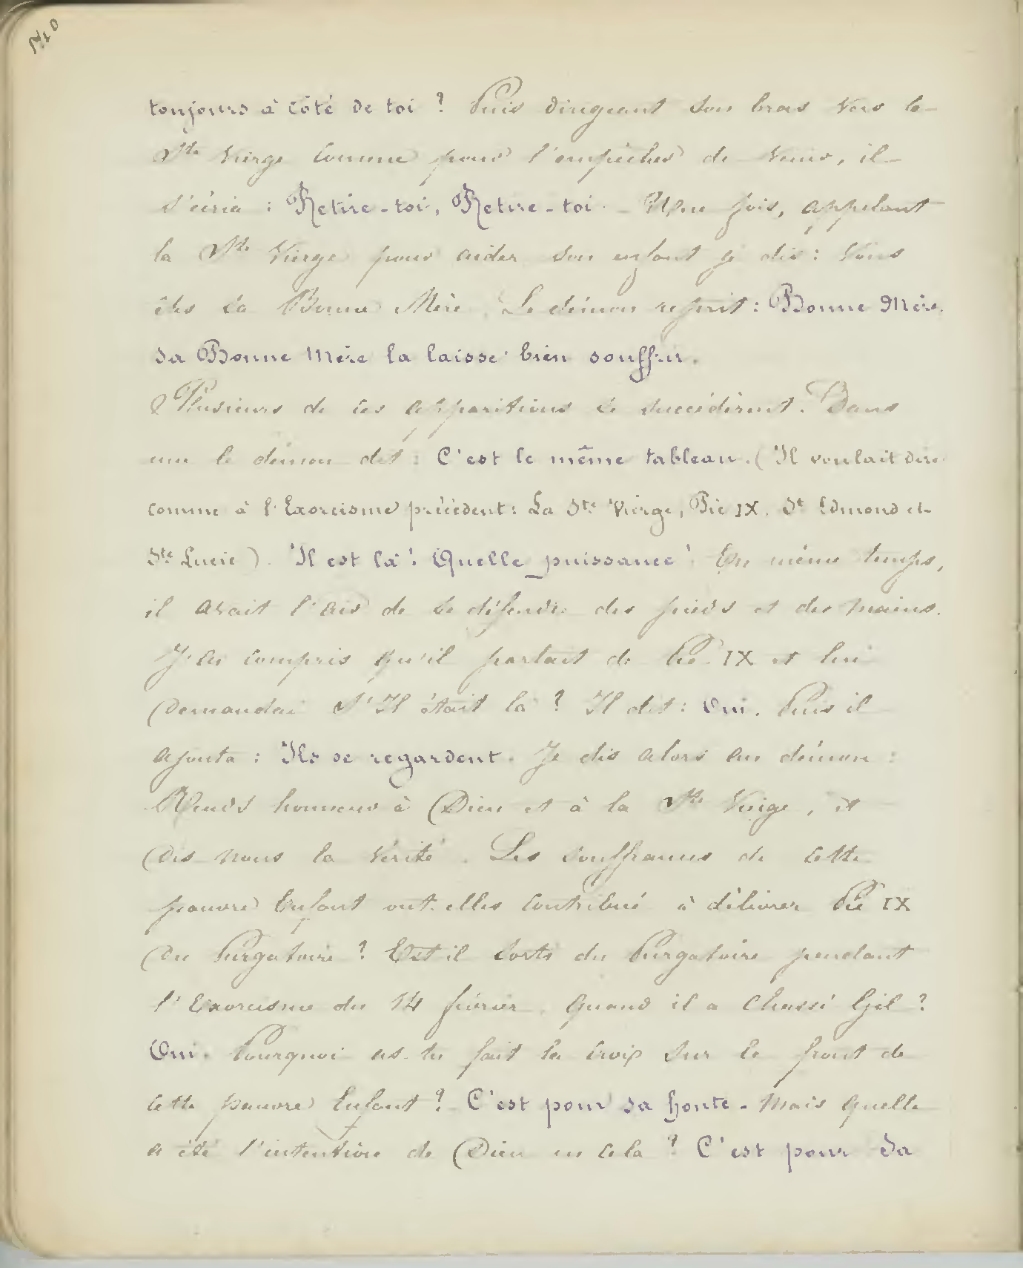 toujours à côté de toi ? Puis dirigeant son bras vers la
Ste Vierge comme pour l'empêcher de venir, il
s'écria : Retire-toi, Retire-toi. - Une fois, appelant
la Ste Vierge pour aider son enfant je dis : Vous
êtes la Bonne Mère. Le démon reprit : Bonne Mère.
Sa Bonne Mère la laisse bien souffrir.
Plusieurs de ces apparitions se succédèrent. Dans
une le démon dit : C'est le même tableau. (Il voulait dire
comme à l'Exorcisme précédent : La Ste Vierge, Pie IX. St Edmond et
Ste Lucie). Il est là ! Quelle puissance ! En même temps,
il avait l'air de se défendre des pieds et des mains.
J'ai compris qu'il parlait de Pie IX et lui
demandai s'Il était là ? Il dit : Oui. Puis il
ajouta : Ils se regardent. Je dis alors au démon :
Rends honneur à Dieu et à la Ste Vierge, et
dis nous la vérité. Les souffrances de cette
pauvre Enfant ont-elles contribué à délivrer Pie IX
du Purgatoire ? Est-il sorti du Purgatoire pendant
l'Exorcisme du 14 février. Quand il a chassé Gil ?
Oui. Pourquoi as-tu fait la croix sur le front de
cette pauvre Enfant ? - C'est pour sa honte. - Mais quelle
a été l'intention de Dieu en cela ? C'est pour Sa